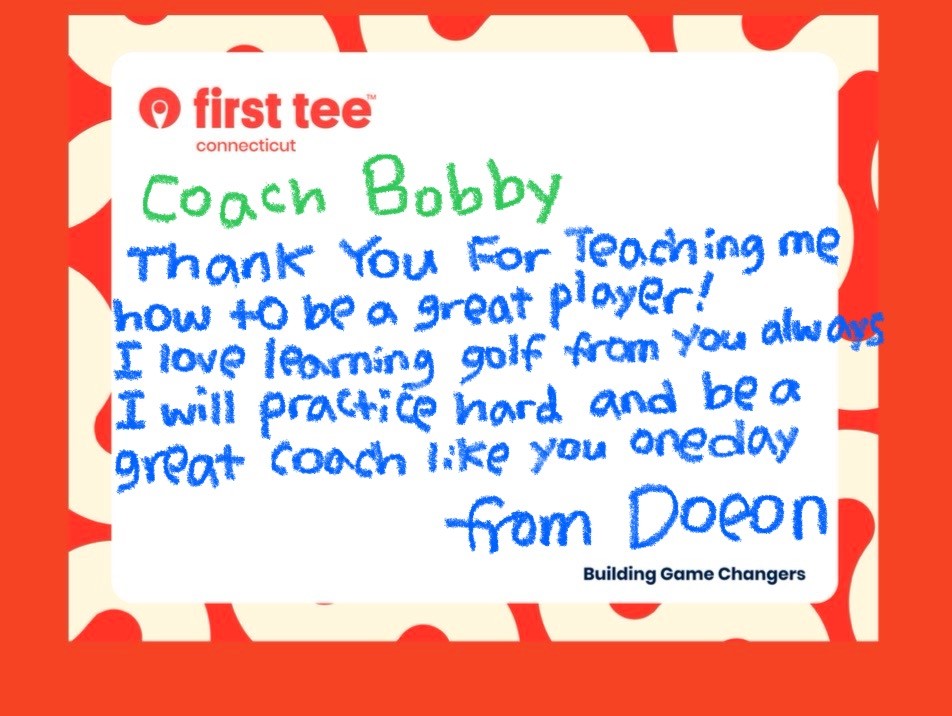 first tee™
connecticut
Coach Bobby
Thank You For Teaching me
how to be a great player!
I love learning golf from you always
I will practice hard and be a
great coach like you oneday
from Doeon
Building Game Changers